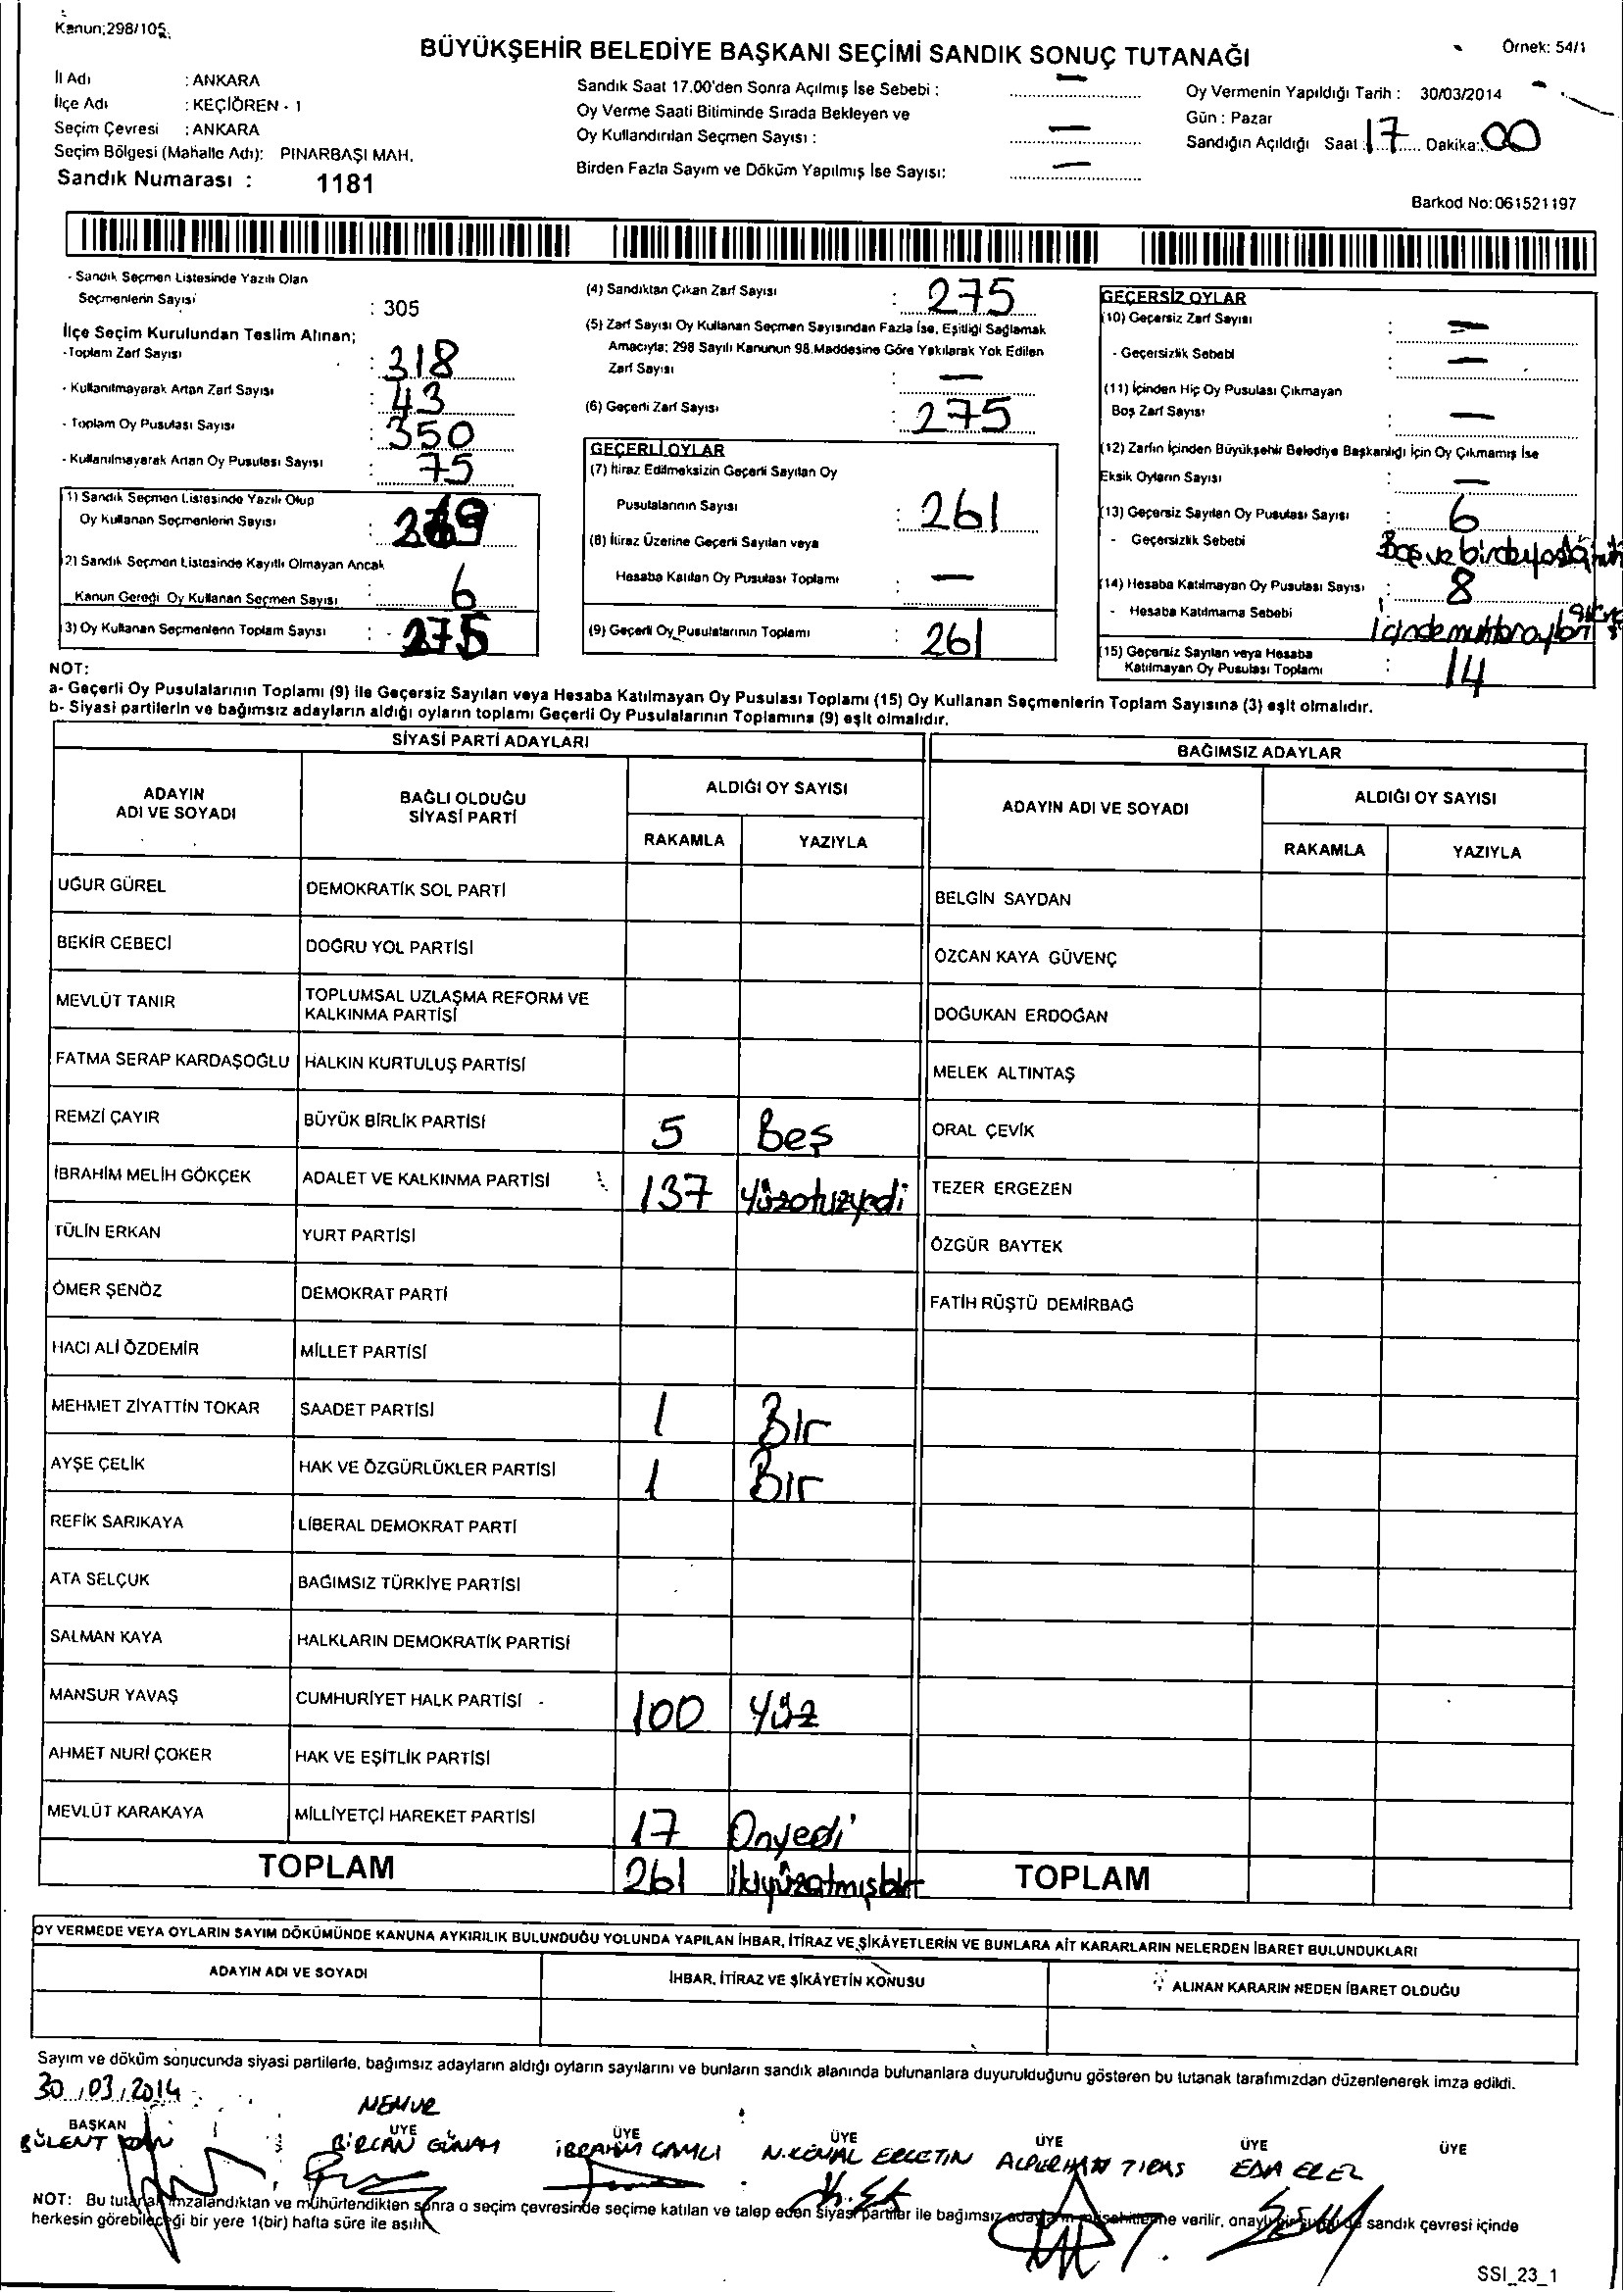 Kanun;298/105.
Örnek: 54/1
BÜYÜKŞEHİR BELEDİYE BAŞKANI SEÇİMİ SANDIK SONUÇ TUTANAĞI
İl Adı : ANKARA
İlçe Adı : KEÇİÖREN - 1
Seçim Çevresi : ANKARA
Seçim Bölgesi (Mahalle Adı): PINARBAŞI MAH.
Sandık Numarası : 1181
Sandık Saat 17.00'den Sonra Açılmış İse Sebebi : —
Oy Verme Saati Bitiminde Sırada Bekleyen ve
Oy Kullandırılan Seçmen Sayısı : —
Birden Fazla Sayım ve Döküm Yapılmış İse Sayısı: —
Oy Vermenin Yapıldığı Tarih : 30/03/2014
Gün : Pazar
Sandığın Açıldığı Saat : 17 Dakika: 00
Barkod No: 061521197
- Sandık Seçmen Listesinde Yazılı Olan
Seçmenlerin Sayısı : 305
İlçe Seçim Kurulundan Teslim Alınan;
- Toplam Zarf Sayısı : 318
- Kullanılmayarak Artan Zarf Sayısı : 43
- Toplam Oy Pusulası Sayısı : 350
- Kullanılmayarak Artan Oy Pusulası Sayısı : 75
1) Sandık Seçmen Listesinde Yazılı Olup
Oy Kullanan Seçmenlerin Sayısı : 269
2) Sandık Seçmen Listesinde Kayıtlı Olmayan Ancak
Kanun Gereği Oy Kullanan Seçmen Sayısı : 6
3) Oy Kullanan Seçmenlerin Toplam Sayısı : 275
(4) Sandıktan Çıkan Zarf Sayısı : 275
(5) Zarf Sayısı Oy Kullanan Seçmen Sayısından Fazla İse, Eşitliği Sağlamak
Amacıyla; 298 Sayılı Kanunun 98.Maddesine Göre Yakılarak Yok Edilen
Zarf Sayısı : —
(6) Geçerli Zarf Sayısı : 275
GEÇERLİ OYLAR
(7) İtiraz Edilmeksizin Geçerli Sayılan Oy
Pusulalarının Sayısı : 261
(8) İtiraz Üzerine Geçerli Sayılan veya
Hesaba Katılan Oy Pusulası Toplamı : —
(9) Geçerli Oy Pusulalarının Toplamı : 261
GEÇERSİZ OYLAR
(10) Geçersiz Zarf Sayısı : —
- Geçersizlik Sebebi : —
(11) İçinden Hiç Oy Pusulası Çıkmayan
Boş Zarf Sayısı : —
(12) Zarfın İçinden Büyükşehir Belediye Başkanlığı İçin Oy Çıkmamış İse
Eksik Oyların Sayısı : —
(13) Geçersiz Sayılan Oy Pusulası Sayısı : 6
- Geçersizlik Sebebi : Boş ve birden
(14) Hesaba Katılmayan Oy Pusulası Sayısı : 8
- Hesaba Katılmama Sebebi : İçinde
(15) Geçersiz Sayılan veya Hesaba
Katılmayan Oy Pusulası Toplamı : 14
NOT:
a- Geçerli Oy Pusulalarının Toplamı (9) ile Geçersiz Sayılan veya Hesaba Katılmayan Oy Pusulası Toplamı (15) Oy Kullanan Seçmenlerin Toplam Sayısına (3) eşit olmalıdır.
b- Siyasi partilerin ve bağımsız adayların aldığı oyların toplamı Geçerli Oy Pusulalarının Toplamına (9) eşit olmalıdır.
SİYASİ PARTİ ADAYLARI
ADAYIN ADI VE SOYADI
BAĞLI OLDUĞU SİYASİ PARTİ
ALDIĞI OY SAYISI
RAKAMLA YAZIYLA
UĞUR GÜREL DEMOKRATİK SOL PARTİ
BEKİR CEBECİ DOĞRU YOL PARTİSİ
MEVLÜT TANIR TOPLUMSAL UZLAŞMA REFORM VE KALKINMA PARTİSİ
FATMA SERAP KARDAŞOĞLU HALKIN KURTULUŞ PARTİSİ
REMZİ ÇAYIR BÜYÜK BİRLİK PARTİSİ 5 Beş
İBRAHİM MELİH GÖKÇEK ADALET VE KALKINMA PARTİSİ 137 Yüzotuzyedi
TÜLİN ERKAN YURT PARTİSİ
ÖMER ŞENÖZ DEMOKRAT PARTİ
HACI ALİ ÖZDEMİR MİLLET PARTİSİ
MEHMET ZİYATTİN TOKAR SAADET PARTİSİ 1 Bir
AYŞE ÇELİK HAK VE ÖZGÜRLÜKLER PARTİSİ 1 Bir
REFİK SARIKAYA LİBERAL DEMOKRAT PARTİ
ATA SELÇUK BAĞIMSIZ TÜRKİYE PARTİSİ
SALMAN KAYA HALKLARIN DEMOKRATİK PARTİSİ
MANSUR YAVAŞ CUMHURİYET HALK PARTİSİ - 100 Yüz
AHMET NURİ ÇOKER HAK VE EŞİTLİK PARTİSİ
MEVLÜT KARAKAYA MİLLİYETÇİ HAREKET PARTİSİ 17 Onyedi
TOPLAM 261 ikiyüzatmışbir
BAĞIMSIZ ADAYLAR
ADAYIN ADI VE SOYADI
ALDIĞI OY SAYISI
RAKAMLA YAZIYLA
BELGİN SAYDAN
ÖZCAN KAYA GÜVENÇ
DOĞUKAN ERDOĞAN
MELEK ALTINTAŞ
ORAL ÇEVİK
TEZER ERGEZEN
ÖZGÜR BAYTEK
FATİH RÜŞTÜ DEMİRBAĞ
TOPLAM
OY VERMEDE VEYA OYLARIN SAYIM DÖKÜMÜNDE KANUNA AYKIRILIK BULUNDUĞU YOLUNDA YAPILAN İHBAR, İTİRAZ VE ŞİKÂYETLERİN VE BUNLARA AİT KARARLARIN NELERDEN İBARET BULUNDUKLARI
ADAYIN ADI VE SOYADI
İHBAR, İTİRAZ VE ŞİKÂYETİN KONUSU
ALINAN KARARIN NEDEN İBARET OLDUĞU
Sayım ve döküm sonucunda siyasi partilerle, bağımsız adayların aldığı oyların sayılarını ve bunların sandık alanında bulunanlara duyurulduğunu gösteren bu tutanak tarafımızdan düzenlenerek imza edildi.
30/03/2014
MEMUR
BAŞKAN ÜYE ÜYE ÜYE ÜYE ÜYE ÜYE
BÜLENT BİRCAN GÜNAY İBRAHİM CAMLI N.KEMAL ALPERHAN TIRAS EDA
NOT: Bu tutanak imzalandıktan ve mühürlendikten sonra o seçim çevresinde seçime katılan ve talep eden siyasi partiler ile bağımsız adayların müşahitlerine verilir, onaylı bir sureti de sandık çevresi içinde
herkesin görebileceği bir yere 1(bir) hafta süre ile asılır.
SSI_23_1